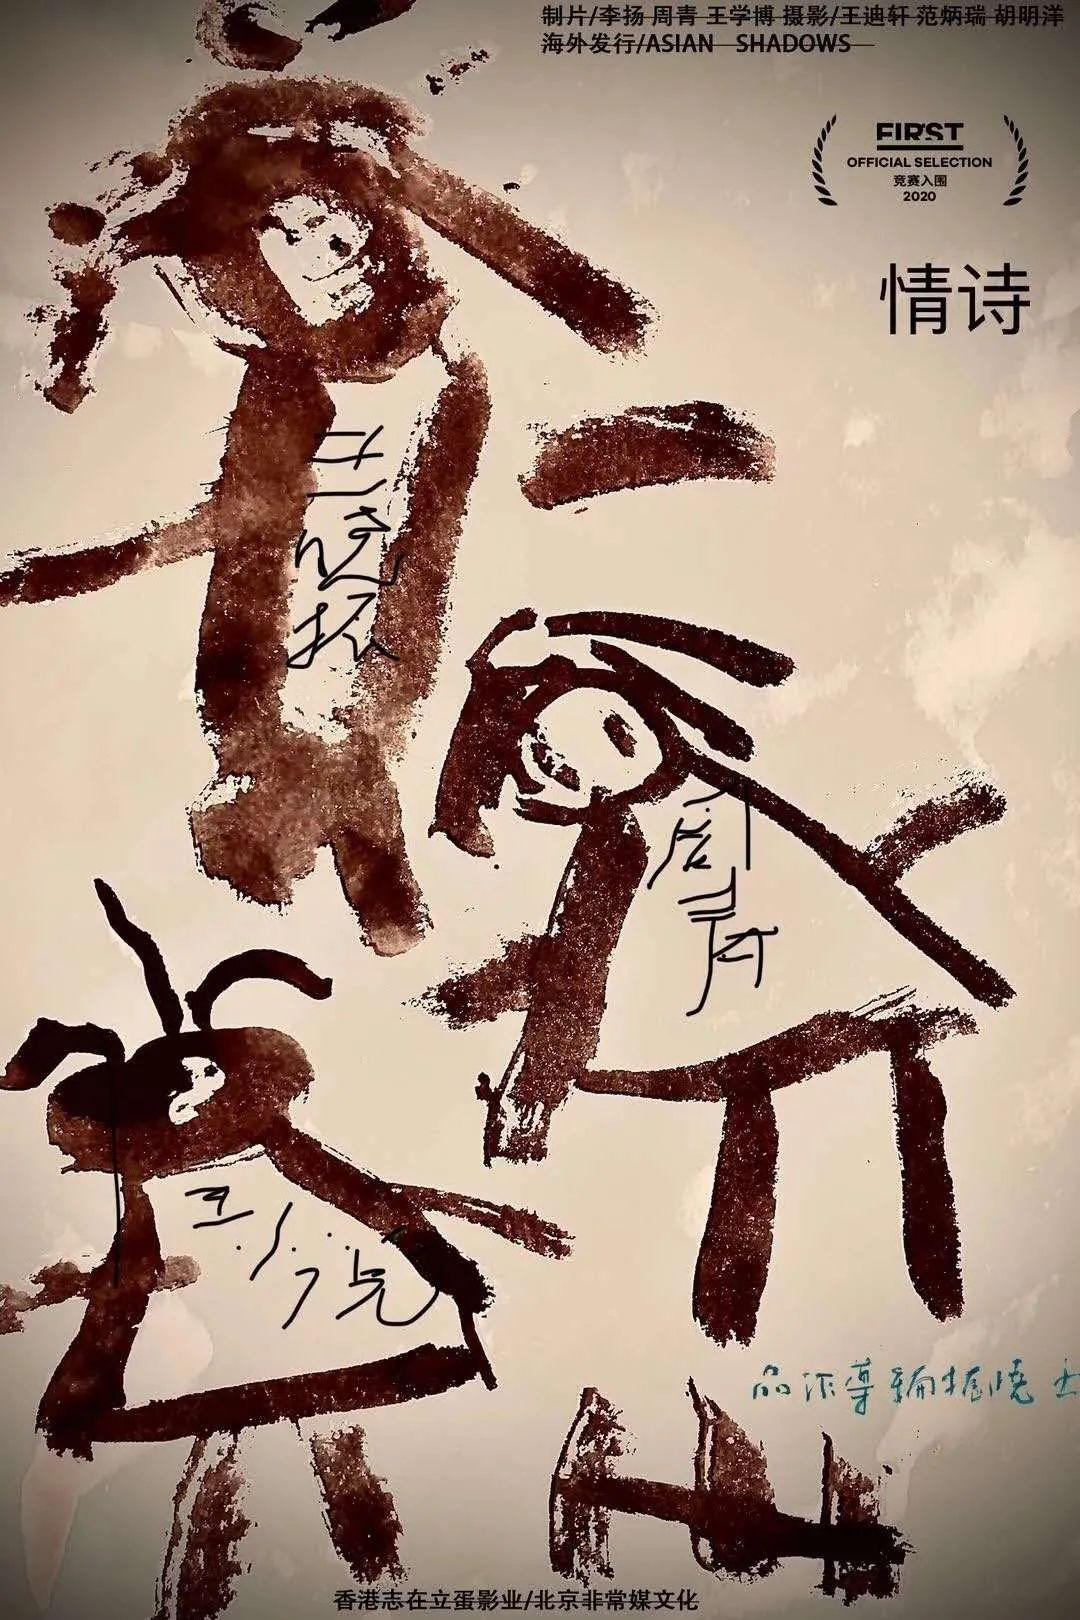 制片/李扬 周青 王学博 摄影/王迪轩 范炳瑞 胡明洋
海外发行/ASIAN SHADOWS
FIRST
OFFICIAL SELECTION
竞赛入围
2020
情诗
王晓振
周青
王小优
品作導編振曉王
香港志在立蛋影业/北京非常媒文化